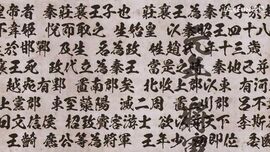 皇帝者 秦莊襄王子也 莊襄王為
韋姬 悅而取之 生始皇 以秦 王四十八
於邯鄲 及生 名為政 姓趙氏
王死 政代立為秦王 當是之時 秦地已并
越宛有郢 置南郡矣 北收上郡以 有河
上黨郡 東至滎陽 滅二周 置三
曰文信侯 招致賓客游士 欲以 天下 李斯
王齮 麃公等為將軍 王年少 即位
元年